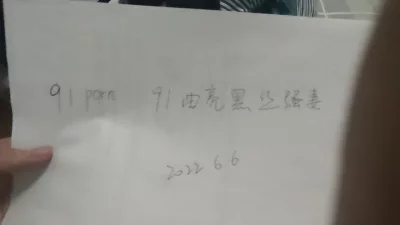 91 porn 91油亮黑丝骚妻
2022 6 6